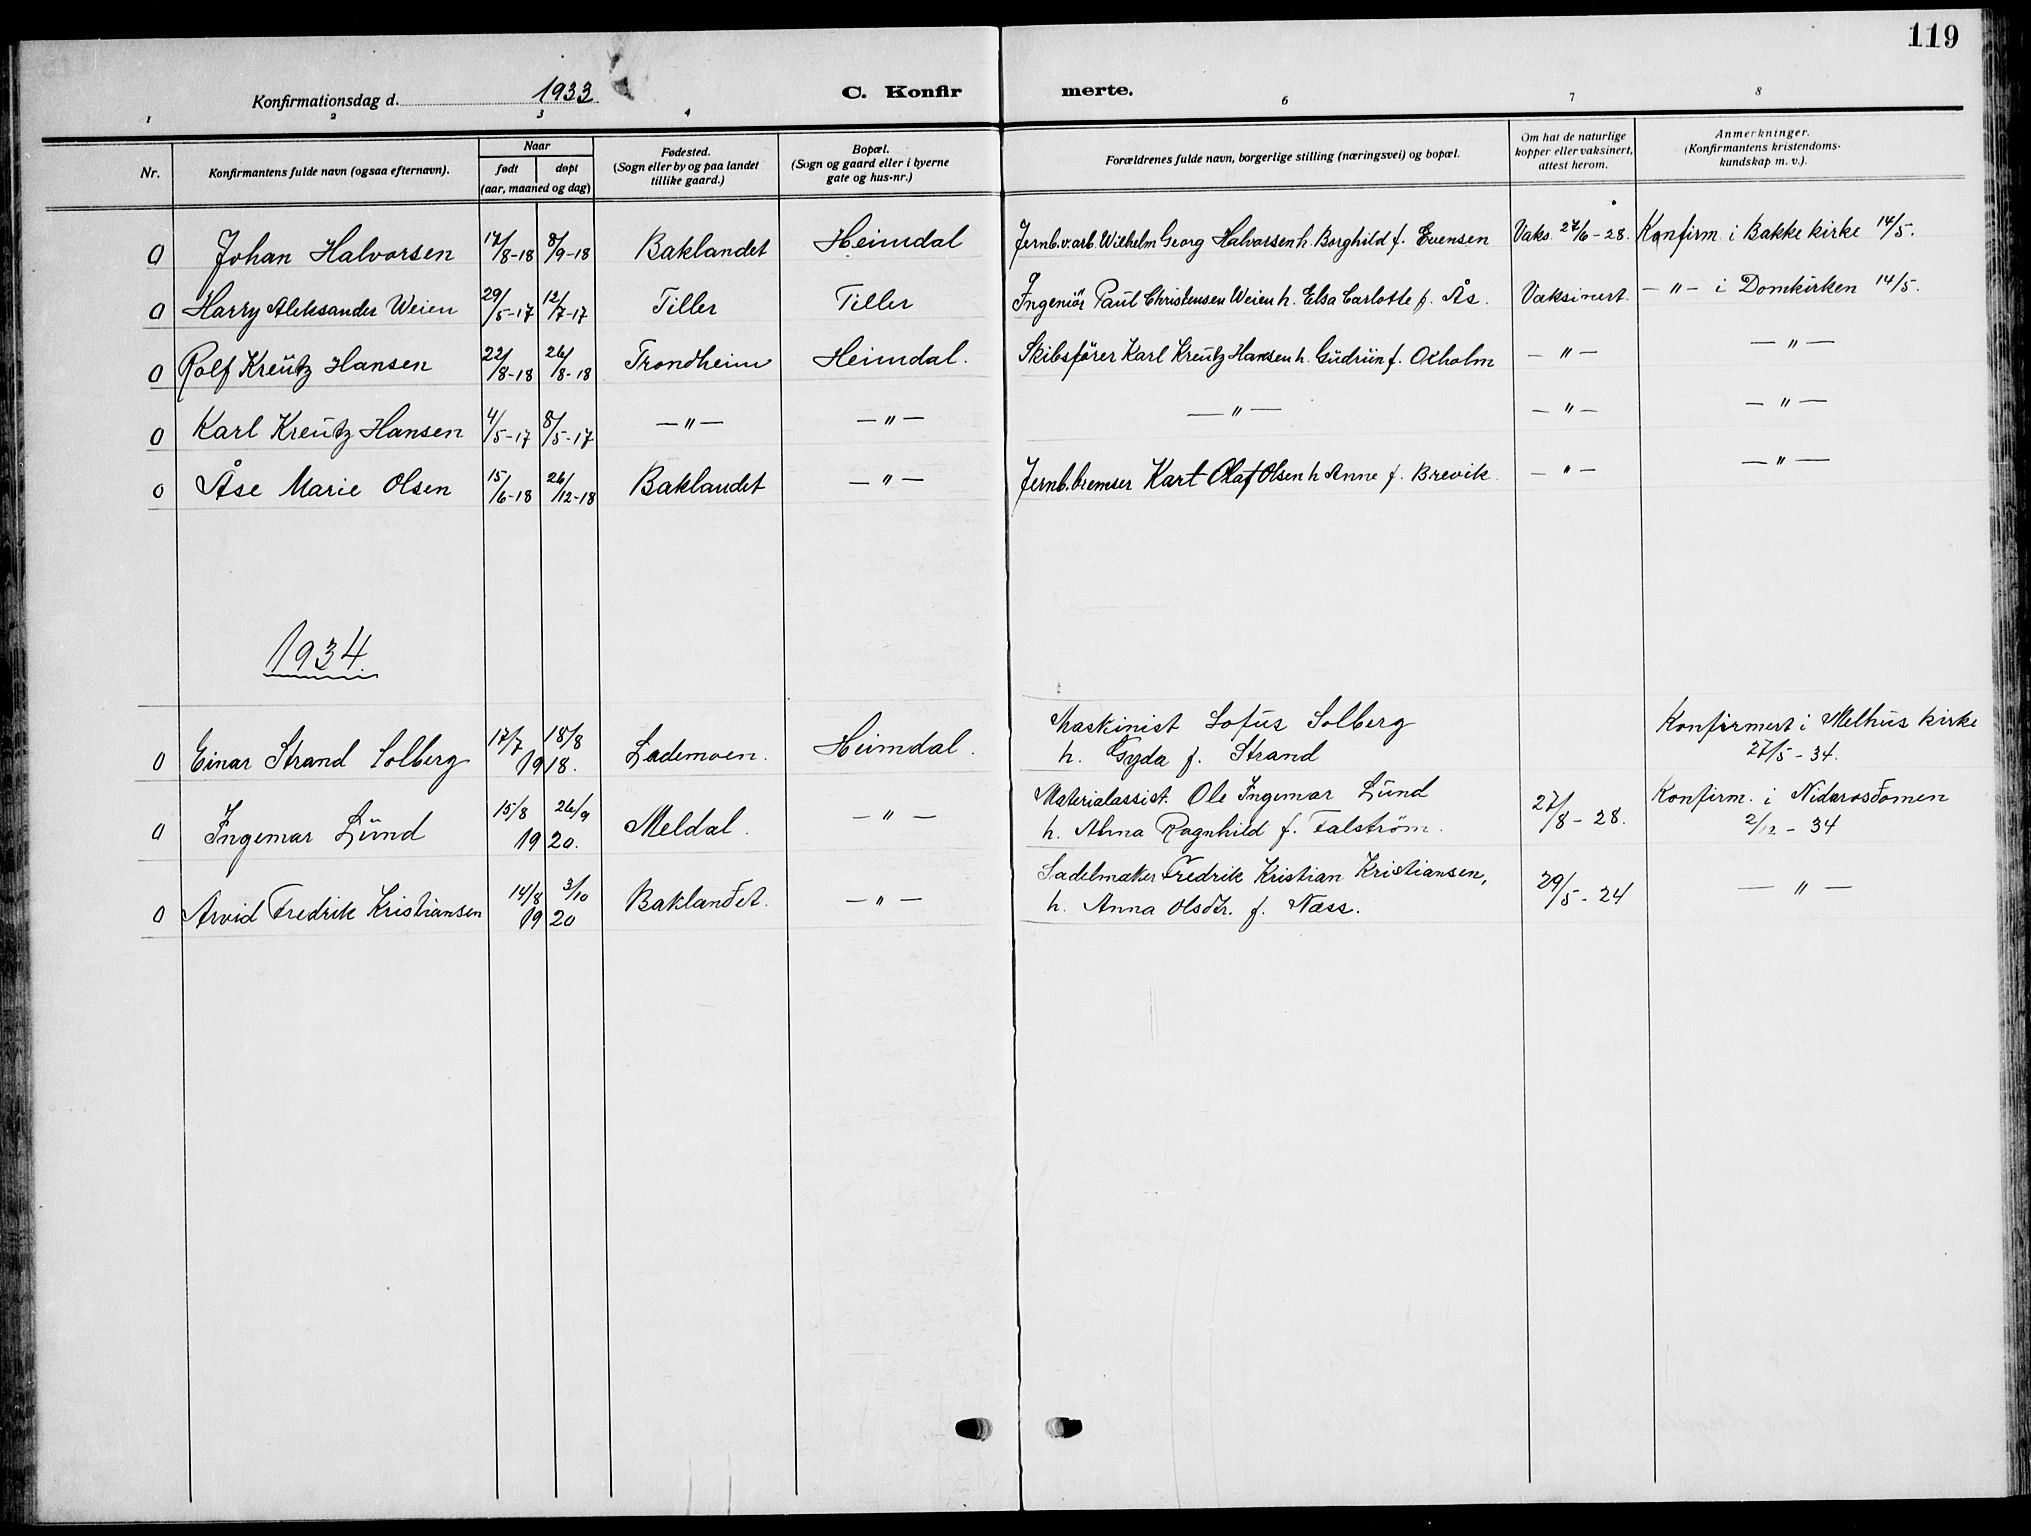 119
Konfirmationsdag d. 1933 C. Konfir merte.
1 2 3 4 6 7 8
Nr. Konfirmantens fulde navn (ogsaa efternavn). Naar født døpt (aar, maaned og dag) Fødested. (Sogn eller by og paa landet tillike gaard.) Bopæl. (Sogn og gaard eller i byerne gate og hus-nr.) Forældrenes fulde navn, borgerlige stilling (næringsvei) og bopæl. Om hat de naturlige kopper eller vaksinert, attest herom. Anmerkninger. (Konfirmantens kristendoms-kundskap m. v.).
0 Johan Halvorsen 17/8-18 8/9-18 Baklandet Heimdal Jernb.v.arb. Wilhelm Georg Halvorsen h. Borghild f. Evensen Vaks. 27/6-28. Konfirm. i Bakke kirke 14/5.
0 Harry Aleksander Weien 29/5-17 12/7-17 Tiller Tiller Ingeniør Paul Christensen Weien h. Elsa Carlotte f. Ås. Vaksinert. -"- i Domkirken 14/5.
0 Rolf Kreutz Hansen 22/8-18 26/8-18 Trondheim Heimdal. Skibsfører Karl Kreutz Hansen h. Gudrun f. Oxholm -"- -"-
0 Karl Kreutz Hansen 4/5-17 8/5-17 -"- -"- -"- -"- -"-
0 Åse Marie Olsen 15/6-18 26/12-18 Baklandet -"- Jernb.bremser Karl Olaf Olsen h Anne f. Brevik. -"- -"-
1934.
0 Einar Strand Solberg 17/7 18/8 1918. Lademoen. Heimdal. Maskinist Lofus Solberg h. Gyda f. Strand Konfirmert i Melhus kirke 27/5-34.
0 Ingemar Lund 15/8 26/9 1920. Meldal. -"- Materialassist. Ole Ingemar Lund h. Anna Ragnhild f. Falström. 27/8-28. Konfirm. i Nidarosdomen 2/12-34
0 Arvid Fredrik Kristiansen 14/8 3/10 1920 Baklandet. -"- Sadelmaker Fredrik Kristian Kristiansen, h. Anna Olsdtr. f. Næss. 29/5-24 -"-